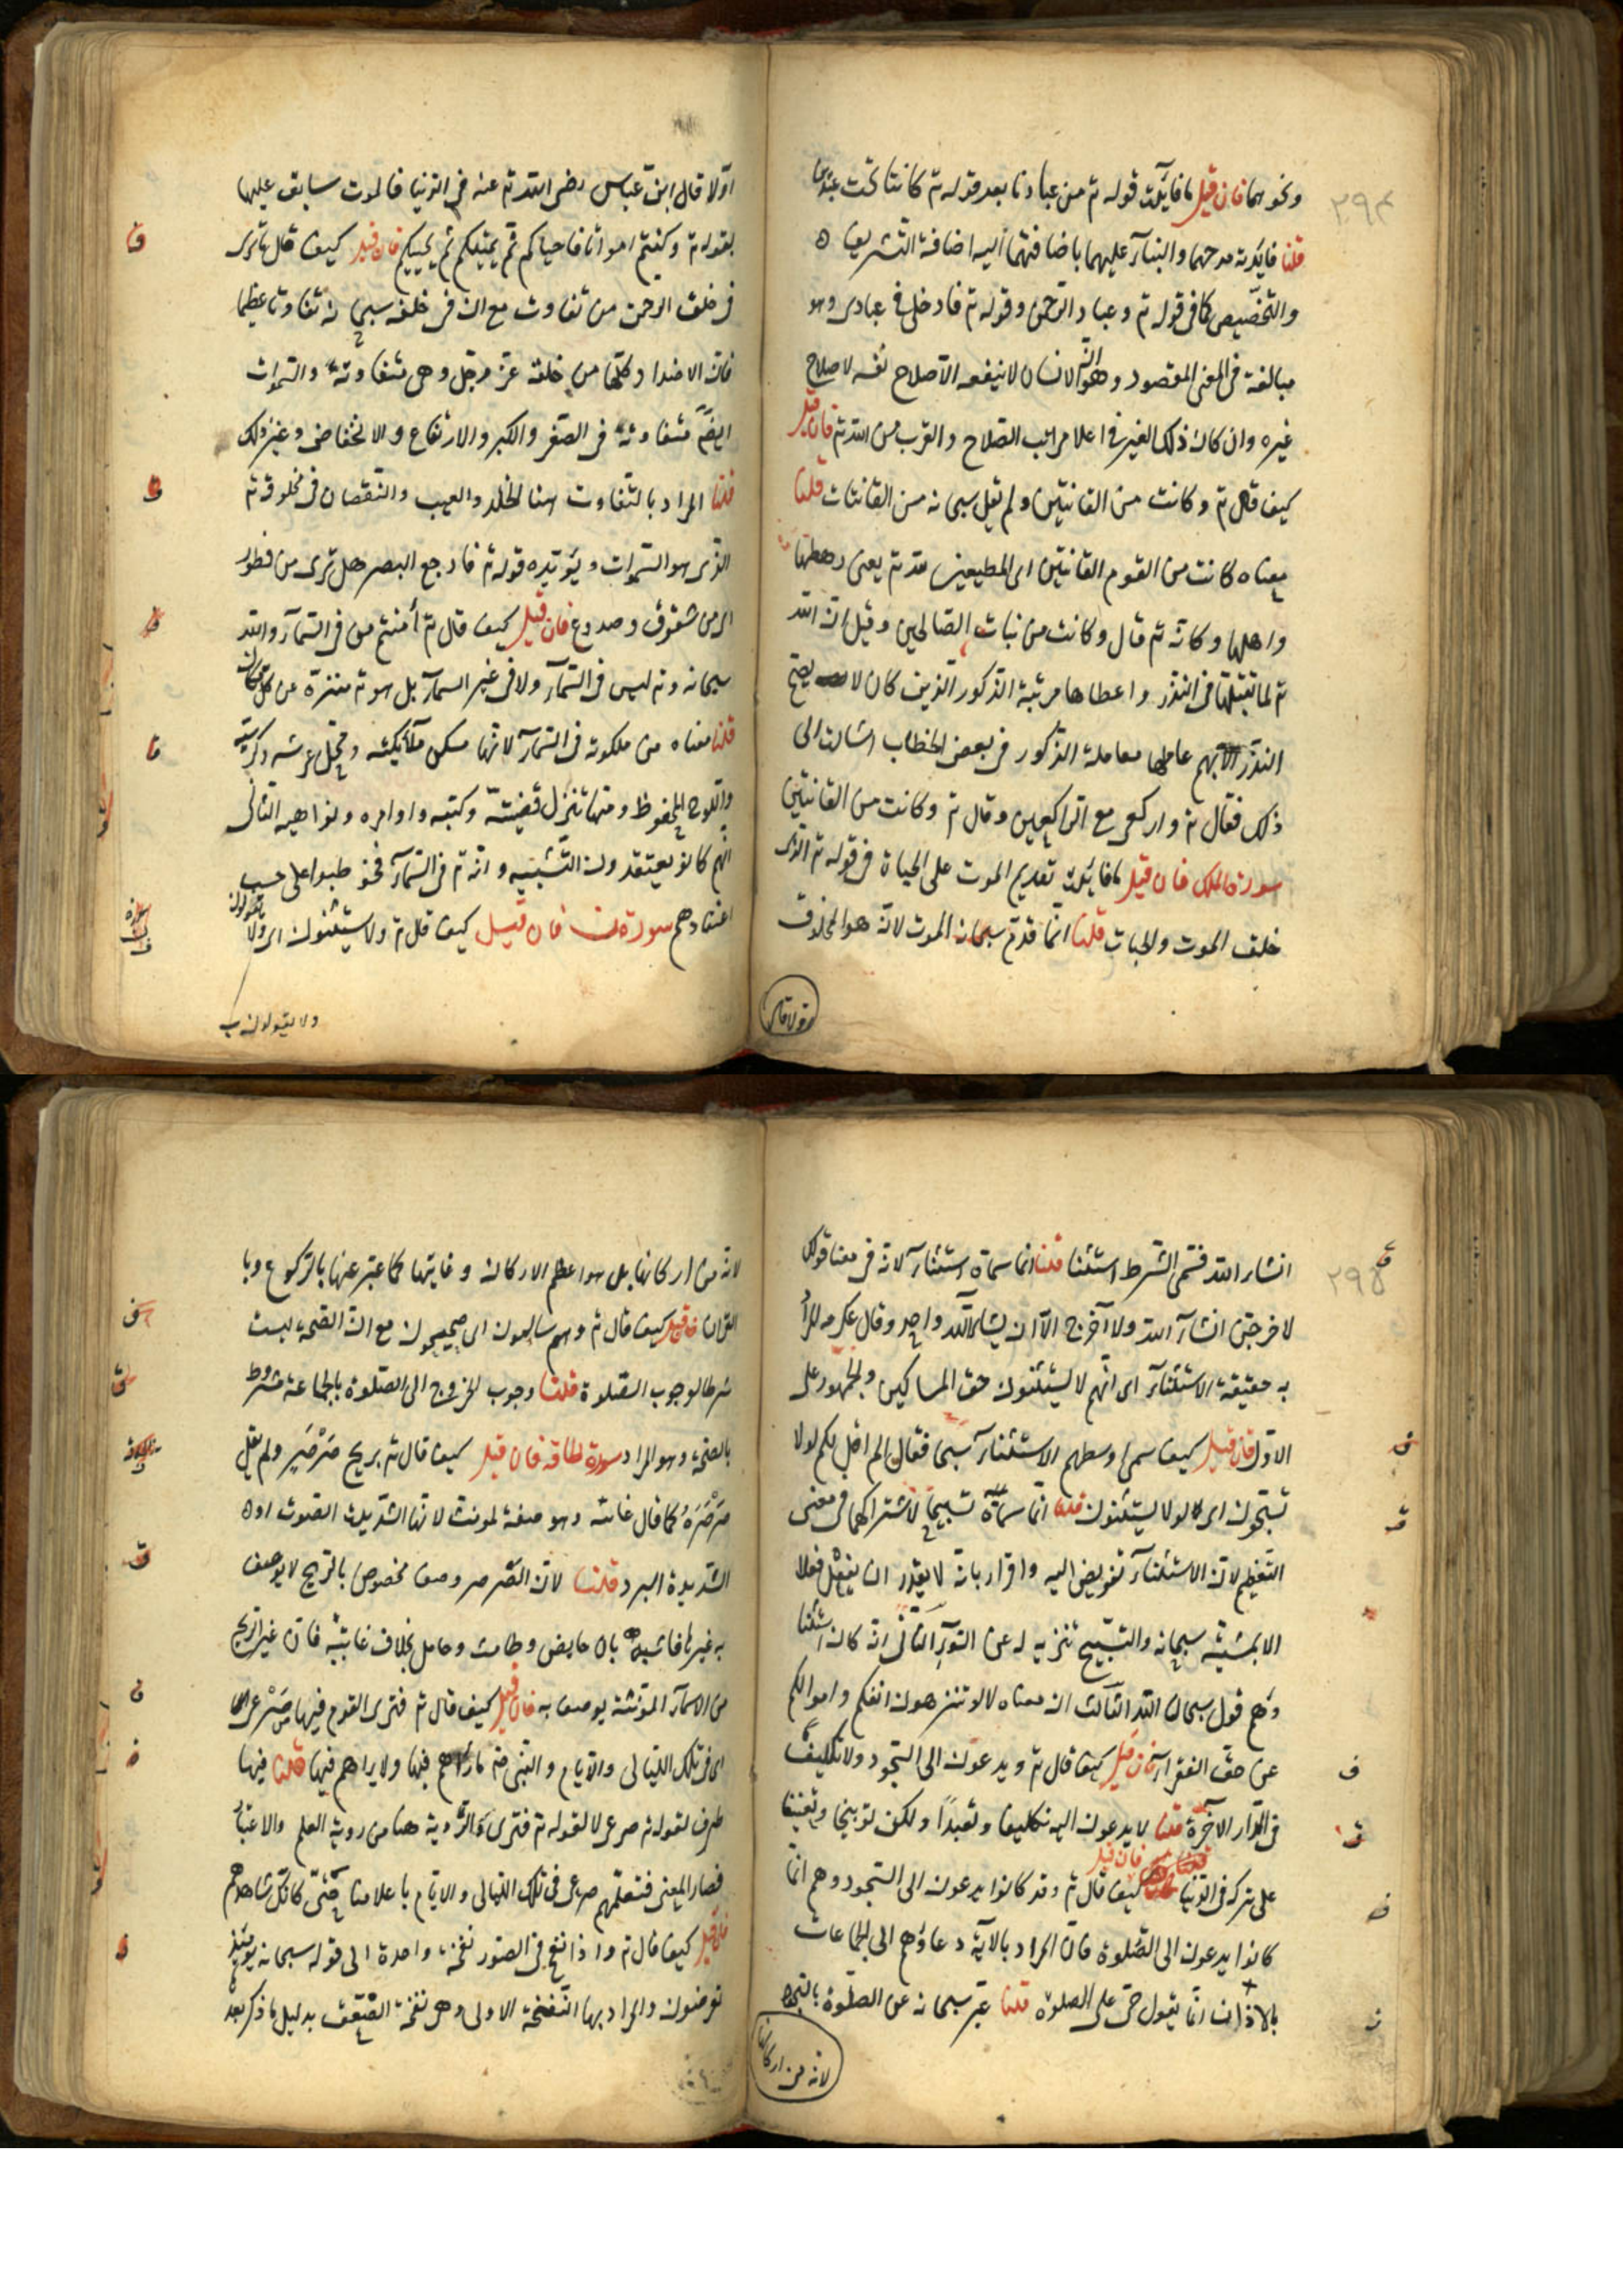 ٢٩٤
ونحوهما فان قيل ما فائدة قوله تم من عبادنا بعد قوله تم كانتا تحت عبدين
قلنا فائدته مدحهما والثناء عليهما باضافتهما اليه اضافة التشريف
والتخصيص كما فى قوله تم وعباد الرحمن وقوله تم فادخلى فى عبادى وهو
مبالغة فى المعنى المقصود وهو ان الانسان لا ينفعه الا صلاح نفسه لا صلاح
غيره وان كان ذلك الغير فى اعلا مراتب الصلاح والقرب من الله تم فان قيل
كيف قال تم وكانت من القانتين ولم يقل سبحانه من القانتات قلنا
معناه كانت من القوم القانتين اى المطيعين لله تم يعنى رهطها
واهلها وكانه تم قال وكانت من بنات الصالحين وقيل ان الله
تم لما تقبلها فى النذر واعطاها مرتبة الذكور الذين كان لا يصح
النذر الا بهم عاملها معاملة الذكور فى بعض الخطاب اشارة الى
ذلك فقال تم واركعى مع الراكعين وقال تم وكانت من القانتين
سورة الملك فان قيل ما فائدة تقديم الموت على الحياة فى قوله تم الذى
خلق الموت والحيات قلنا انما قدم سبحانه الموت لانه هو المخلوق
اولا قال ابن عباس رضى الله تم عنه فى الدنيا فالموت سابق عليها
بقوله تم وكنتم امواتا فاحياكم ثم يميتكم ثم يحييكم فان قيل كيف قال ما ترى
فى خلق الرحمن من تفاوت مع ان فى خلقه سبحانه تفاوتا عظيما
فان الاضداد كلها من خلقه عز وجل وهى متفاوتة والسموات
ايضا متفاوتة فى الصغر والكبر والارتفاع والانخفاض وغير ذلك
قلنا المراد بالتفاوت هنا الخلل والعيب والنقصان فى مخلوقه تم
الذى هو السموات ويؤيده قوله تم فارجع البصر هل ترى من فطور
اى من شقوق وصدوع فان قيل كيف قال تم أمنتم من فى السماء والله
سبحانه وتم ليس فى السماء ولا فى غير السماء بل هو تم منزه عن كل مكان
قلنا معناه من ملكوته فى السماء لانها مسكن ملائكته ومحل عرشه وكرسيه
واللوح المحفوظ ومنها تنزل اقضيته وكتبه واوامره ونواهيه الثانى
انهم كانو يعتقدون التشبيه وانه تم فى السماء فخوطبوا على حسب
اعتقادهم سورة ن فان قيل كيف قال تم ولا يستثنون اى ولا يقولون
ولا يقولون
٢٩٥
انشاء الله فسمى الشرط استثنا قلنا انما سماه استثناء لانه فى معنا قولك
لاخرجن انشاء الله ولا اخرج الا ان يشاء الله واحد وقال عكرمه المراد
به حقيقة الاستثناء اى انهم لا يستثنون حق المساكين والجمهور على
الاول فان قيل كيف سمى اوسطهم الاستثناء تسبيحا فقال الم اقل لكم لولا
تسبحون اى لولا يستثنون قلنا انما سماه تسبيحا لاشتراكهما فى معنى
التعظيم لان الاستثناء تفويض اليه واقرار بانه لا يقدر ان يفعل فعلا
الا بمشيته سبحانه والتسبيح تنزيه له عن السوء الثانى انه كان استثنا
وهم قول سبحان الله الثالث ان معناه لولا تنزهون انفسكم واموالكم
عن حق الفقراء فان قيل كيف قال تم ويدعون الى السجود ولا تكليف
فى الدار الاخرة قلنا لا يدعون اليه تكليفا وتعبدا ولكن توبيخا وتعنيفا
على تركه فى الدنيا فان قيل كيف قال تم وقد كانوا يدعون الى السجود وهم انما
كانوا يدعون الى الصلوة فان المراد بالآية دعاؤهم الى الجماعات
بالاذان انما يقول حى على الصلوة قلنا عبر سبحانه عن الصلوة بالسجود
لانه من اركانها
لانه من اركانها بل هو اعظم الاركان وغايتها كما عبر عنها بالركوع وبا
القران فان قيل كيف قال تم وهم سالمون اى صحيحون مع ان الصحة ليست
شرطا لوجوب الصلوة قلنا وجوب الخروج الى الصلوة بالجماعة مشروط
بالصحة وهو المراد سورة الحاقة فان قيل كيف قال تم بريح صرصر ولم يقل
صرصرة كما قال عاتيه وهو صفة لمونث لانها الشديدة الصوت او
الشديدة البرد قلنا لان الصرصر وصف مخصوص بالريح لا يوصف
به غيرها فاشبه باب حايض وطامث وحامل بخلاف عاتية فان غير الريح
من الاسماء المؤنثة يوصف به فان قيل كيف قال تم فترى القوم فيها صرعى
اى فى تلك الليالى والايام والنبى صم ما رآهم فيها ولا يراهم فيها قلنا فيها
ظرف لقوله تم صرعى لا لقوله تم فترى والرؤية هنا من رؤية العلم والاعتبار
فصار المعنى فتعلمهم صرعى فى تلك الليالى والايام باعلامنا حتى كانك تشاهدهم
فان قيل كيف قال تم واذا نفخ فى الصور نفخة واحدة الى قوله سبحانه يومئذ
تعرضون والمراد بها النفخة الاولى وهى نفخة الصعق بدليل ما ذكر بعد